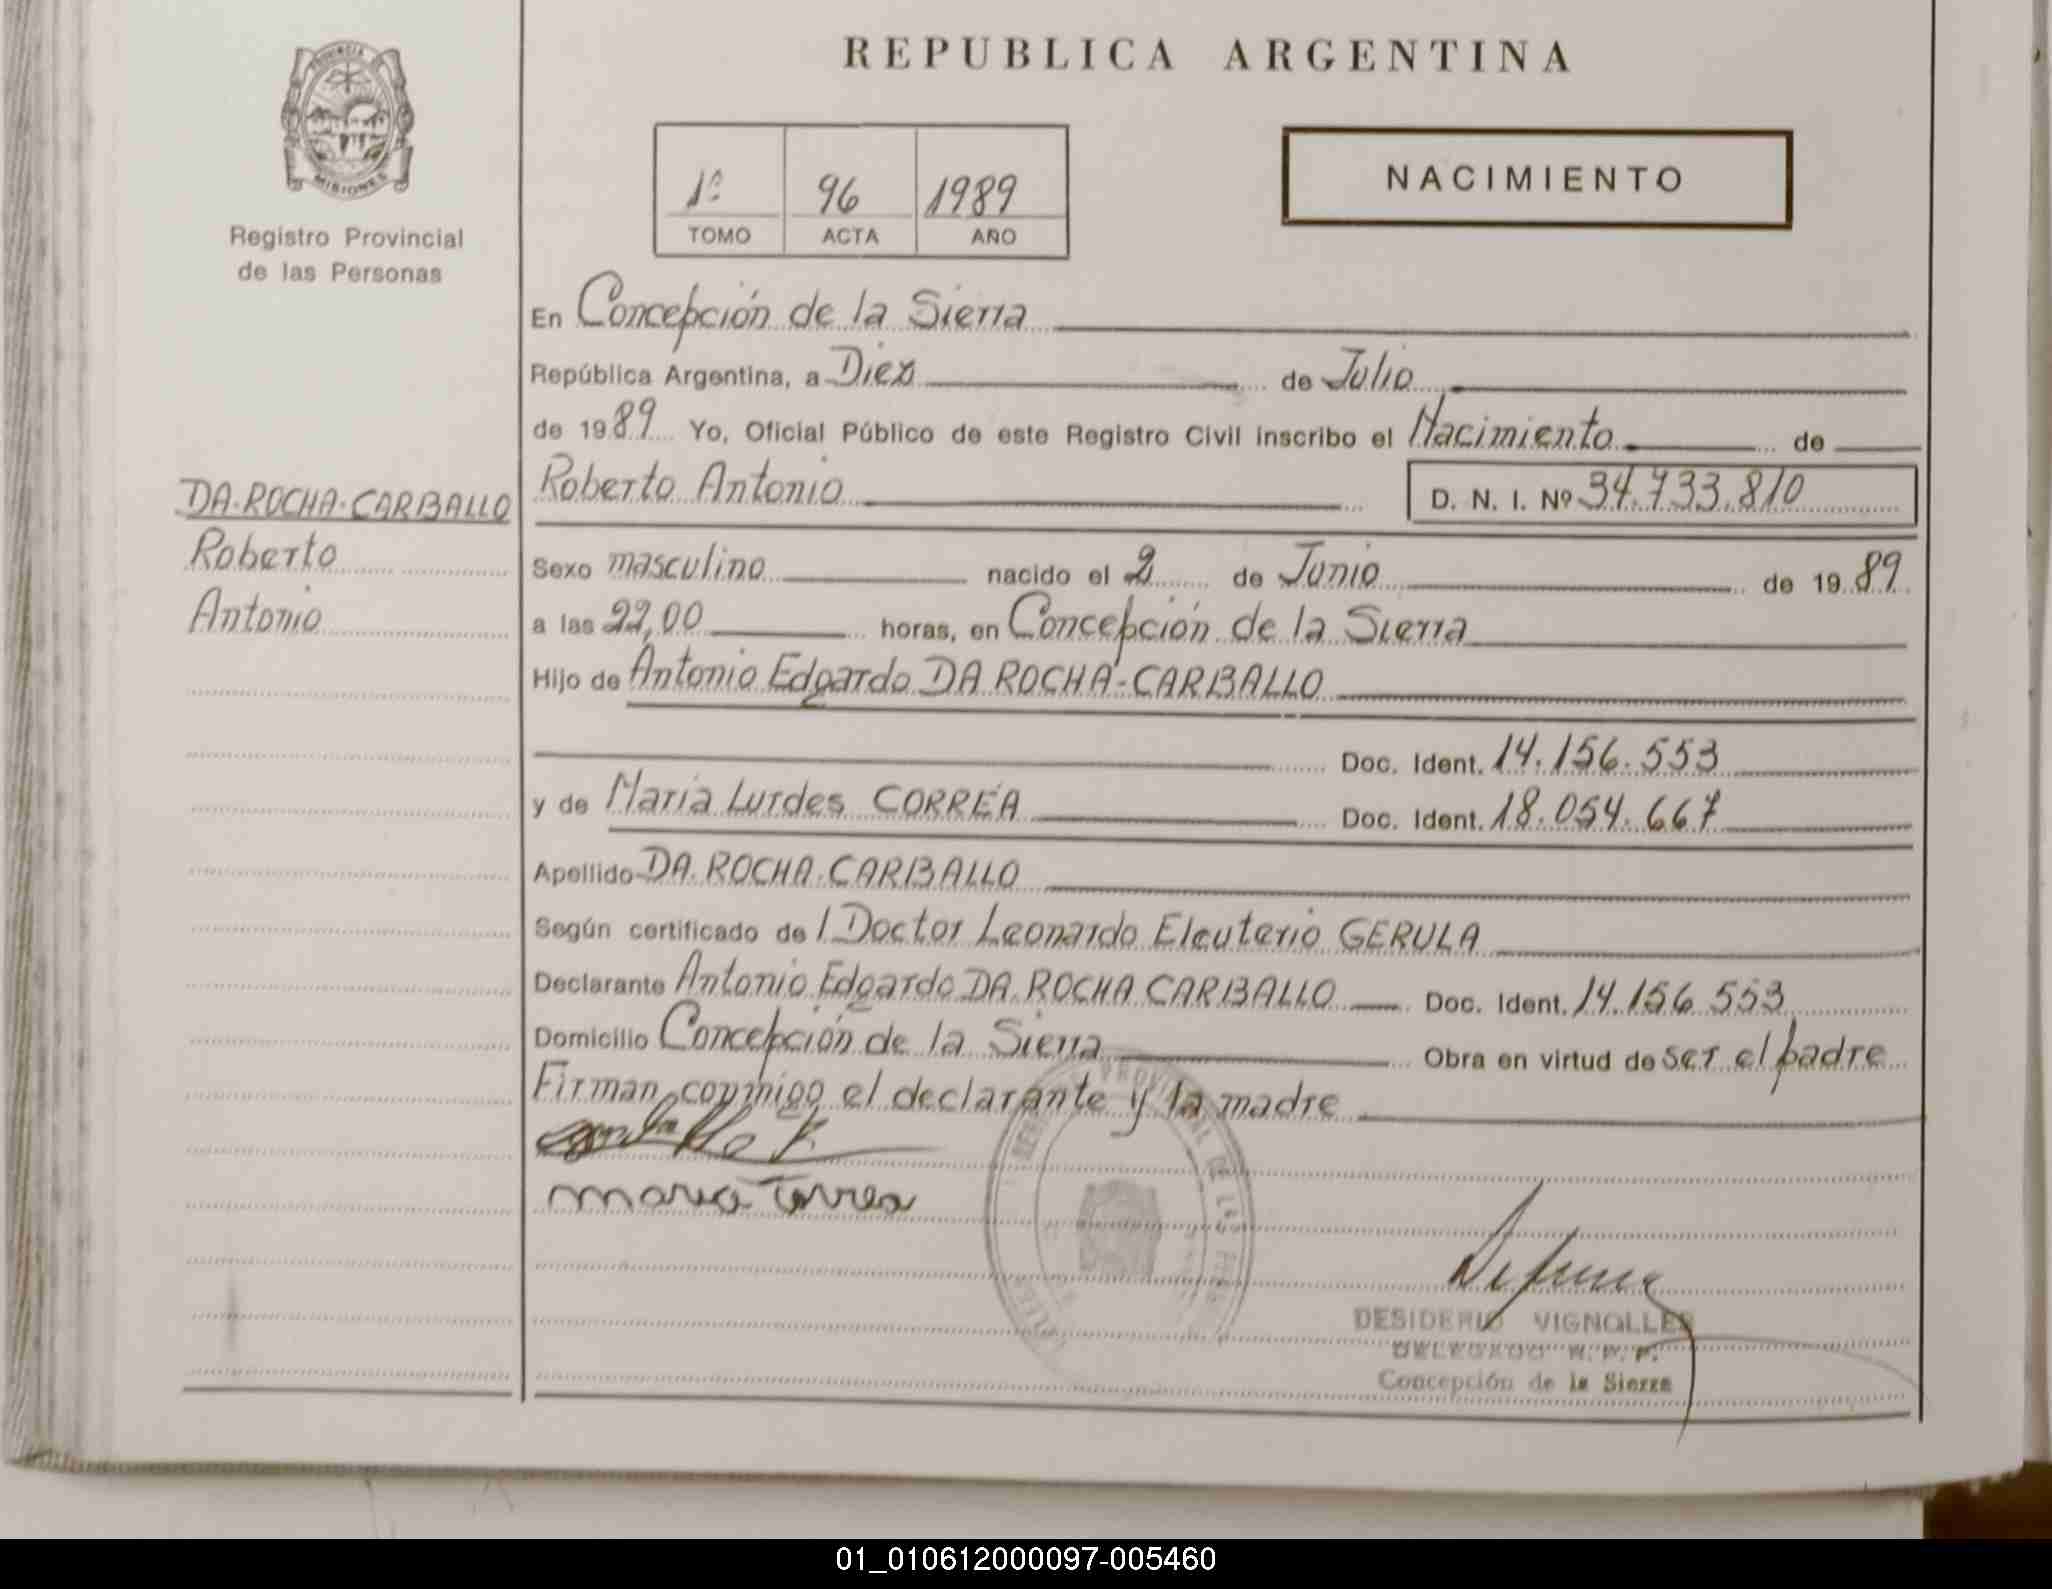 PROVINCIA DE
MISIONES
Registro Provincial
de las Personas
DA ROCHA-CARBALLO
Roberto
Antonio
REPUBLICA ARGENTINA
1º 96 1989
TOMO ACTA AÑO
NACIMIENTO
En Concepción de la Sierra
República Argentina, a Diez de Julio
de 1989 Yo, Oficial Público de este Registro Civil inscribo el Nacimiento de
Roberto Antonio D. N. I. Nº 34.733.810
Sexo masculino nacido el 2 de Junio de 1989
a las 22,00 horas, en Concepción de la Sierra
Hijo de Antonio Edgardo DA ROCHA-CARBALLO
Doc. Ident. 14.156.553
y de María Lurdes CORREA Doc. Ident. 18.054.667
Apellido DA ROCHA CARBALLO
Según certificado del Doctor Leonardo Eleuterio GERULA
Declarante Antonio Edgardo DA ROCHA CARBALLO Doc. Ident. 14.156.553
Domicilio Concepción de la Sierra Obra en virtud de ser el padre
Firman conmigo el declarante y la madre
DESIDERIO VIGNOLLES
DELEGADO R. P. P.
Concepción de la Sierra
01_010612000097-005460